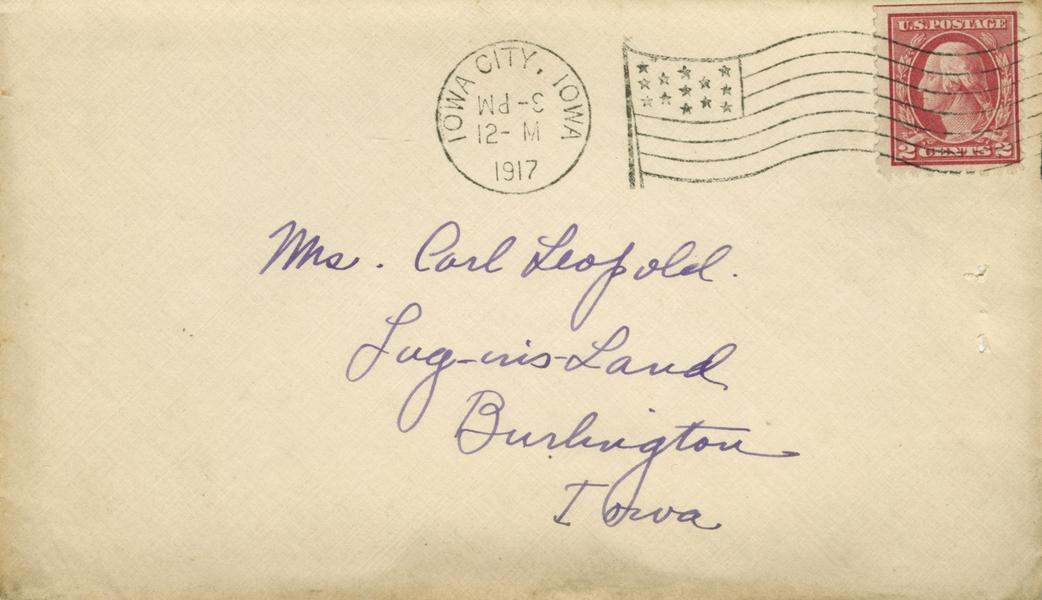 U.S. POSTAGE
2 CENTS 2
IOWA CITY, IOWA
3-PM
12- M
1917
Mrs. Carl Leopold.
Lug-ins-Land
Burlington
Iowa